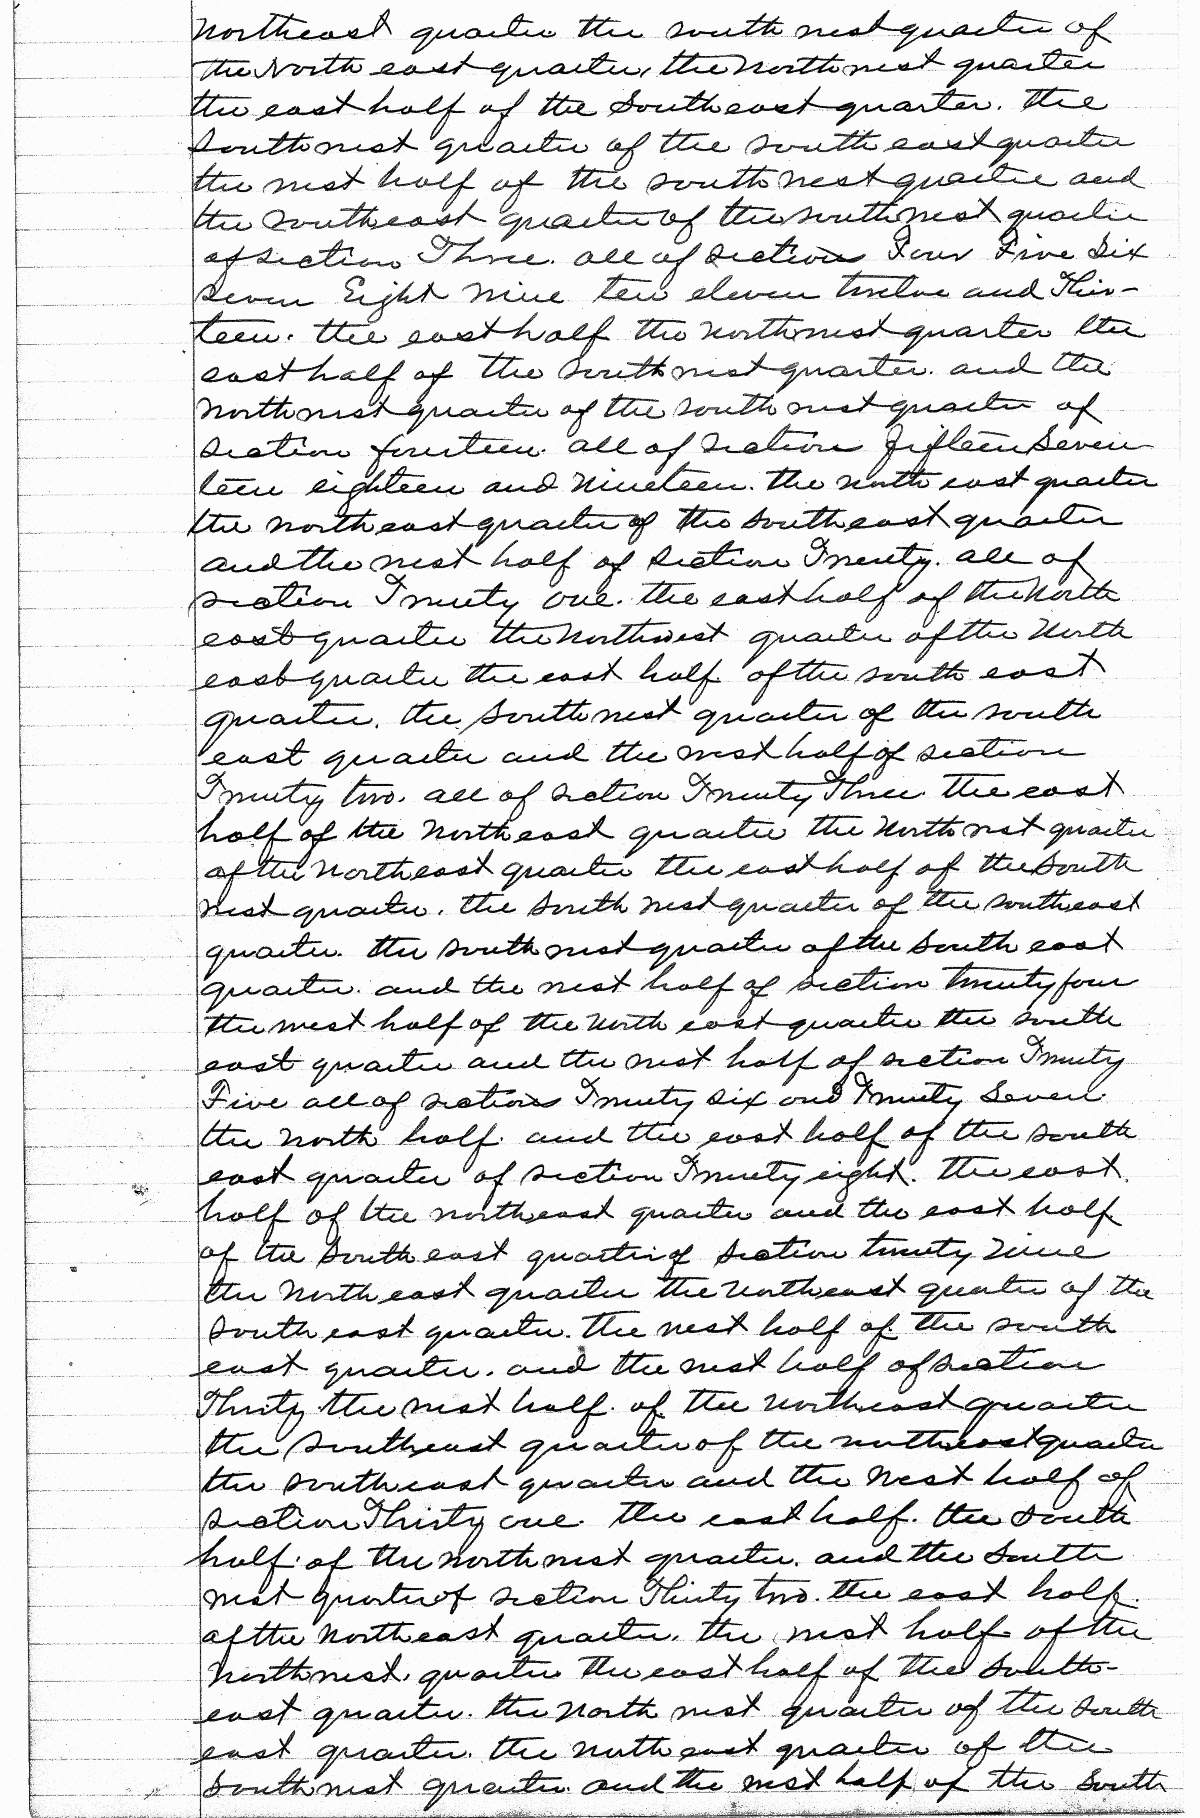 Northeast quarter the south west quarter of
the North east quarter, the North west quarter
the east half of the Southeast quarter. The
Southwest quarter of the south east quarter
the west half of the south west quarter and
the southeast quarter of the southwest quarter
of section Three. all of sections Four Five Six
Seven Eight Nine ten eleven twelve and Thir-
teen. the east half the northwest quarter the
east half of the Southwest quarter. and the
Northwest quarter of the south west quarter of
section fourteen. all of sections fifteen Seven
teen eighteen and Nineteen. the north east quarter
the north east quarter of the Southeast quarter
and the west half of section Twenty. all of
section Twenty one. the east half of the North
east quarter the Northwest quarter of the North
east quarter the east half of the south east
quarter. the Southwest quarter of the south
east quarter and the west half of section
Twenty two. all of section Twenty Three. the east
half of the North east quarter the North west quarter
of the Northeast quarter the east half of the South
west quarter. the South west quarter of the southeast
quarter. the south west quarter of the South east
quarter. and the west half of section twenty four
the west half of the North east quarter the south
east quarter and the west half of section Twenty
Five all of sections Twenty six and Twenty Seven
the North half. and the east half of the south
east quarter of section Twenty eight. the east
half of the northeast quarter and the east half
of the South east quarter of Section twenty Nine
the North east quarter the Northeast quarter of the
South east quarter. the west half of the south
east quarter. and the west half of section
Thirty the west half. of the Northeast quarter
the Southeast quarter of the northeast quarter
the south east quarter and the West half of
section Thirty one. the east half. the South
half of the north west quarter. and the South
west quarter of section Thirty two. the east half.
of the North east quarter. the west half of the
Northwest. quarter the east half of the South-
east quarter. the North west quarter of the South
east quarter. the north east quarter of the
Southwest quarter. and the west half of the South